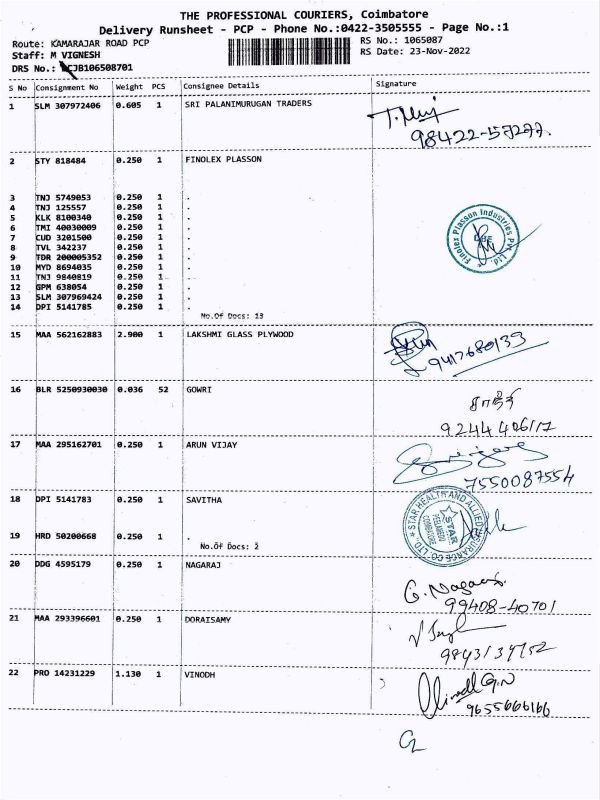 THE PROFESSIONAL COURIERS, Coimbatore
Delivery Runsheet - PCP - Phone No.:0422-3505555 - Page No.:1
Route: KAMARAJAR ROAD PCP
RS No.: 1065087
Staff: M VIGNESH
RS Date: 23-Nov-2022
DRS No.: CJB106508701
S No Consignment No Weight PCS Consignee Details Signature
1 SLM 307972406 0.605 1 SRI PALANIMURUGAN TRADERS
98422-57277
2 STY 818484 0.250 1 FINOLEX PLASSON
3 TNJ 5749053 0.250 1 .
4 TNJ 125557 0.250 1 .
5 KLK 8100340 0.250 1 .
6 TMI 40030009 0.250 1 .
7 CUD 3201500 0.250 1 .
8 TVL 342237 0.250 1 .
9 TDR 200005352 0.250 1 .
10 MYD 8694035 0.250 1 .
11 TNJ 9840819 0.250 1 .
12 GPM 638054 0.250 1 .
13 SLM 307969424 0.250 1 .
14 DPI 5141785 0.250 1 .
Finolex Plasson Industries Pvt. Ltd.
CBE
No.Of Docs: 13
15 MAA 562162883 2.900 1 LAKSHMI GLASS PLYWOOD
9417680133
16 BLR 5250930030 0.036 52 GOWRI
9244406117
17 MAA 295162701 0.250 1 ARUN VIJAY
7550087554
18 DPI 5141783 0.250 1 SAVITHA
STAR HEALTH AND ALLIED INSURANCE CO. LTD.
STAR
PEELAMEDU
COIMBATORE
19 HRD 50200668 0.250 1 .
No.Of Docs: 2
20 DDG 4595179 0.250 1 NAGARAJ
G. Nagaraj
99408-40701
21 MAA 293396601 0.250 1 DORAISAMY
22 PRO 14231229 1.130 1 VINODH
9655666166